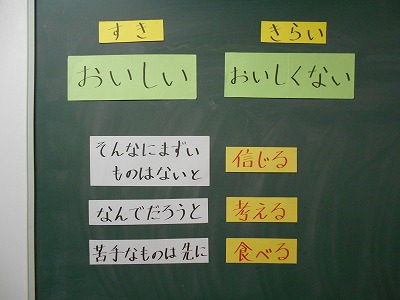 すき
きらい
おいしい
おいしくない
そんなにまずい
ものはないと
信じる
なんでだろうと
考える
苦手なものは先に
食べる